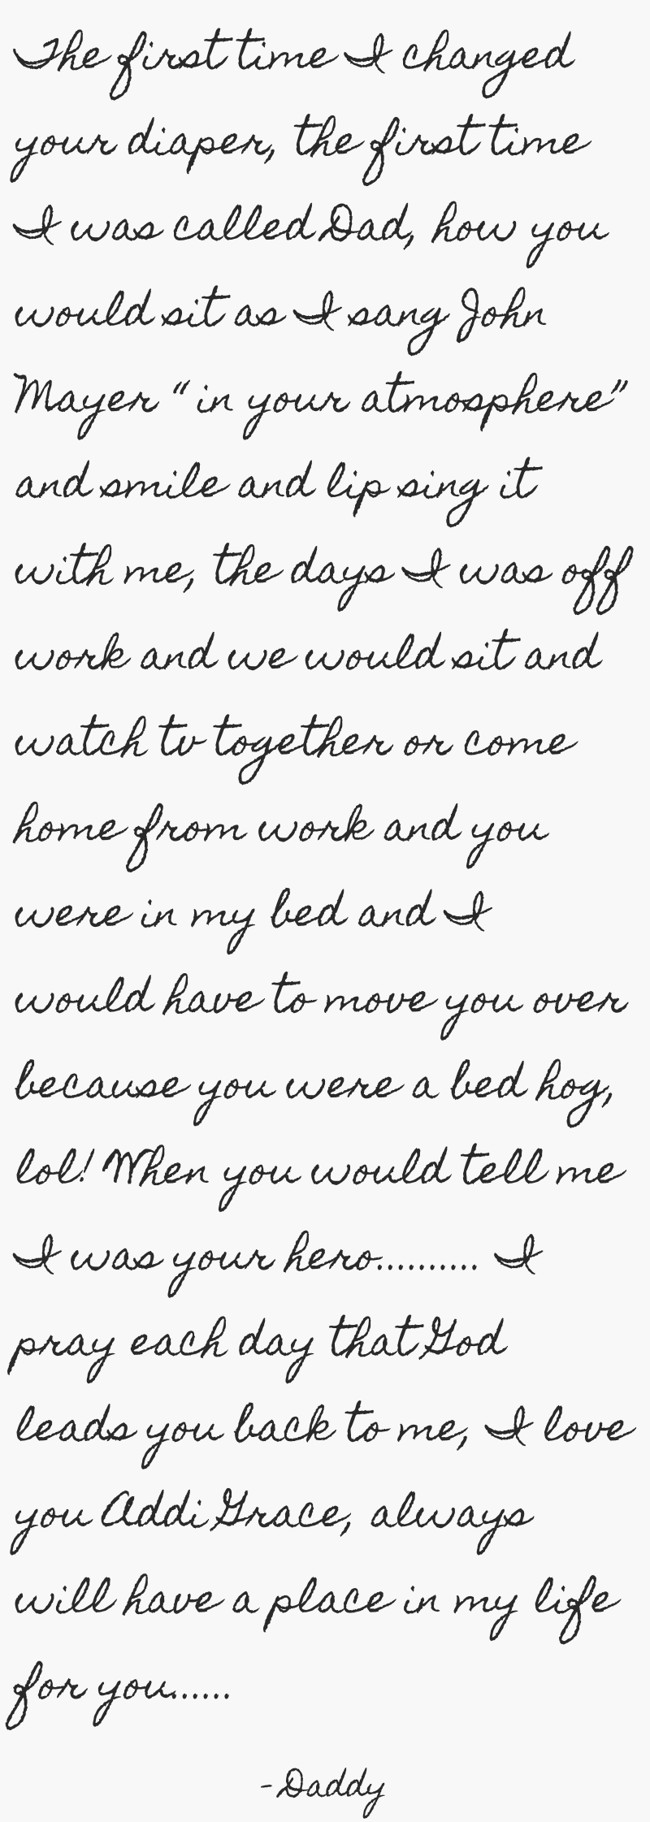 The first time I changed
your diaper, the first time
I was called Dad, how you
would sit as I sang John
Mayer “ in your atmosphere”
and smile and lip sing it
with me, the days I was off
work and we would sit and
watch tv together or come
home from work and you
were in my bed and I
would have to move you over
because you were a bed hog,
lol! When you would tell me
I was your hero.......... I
pray each day that God
leads you back to me, I love
you Addi Grace, always
will have a place in my life
for you......
-Daddy